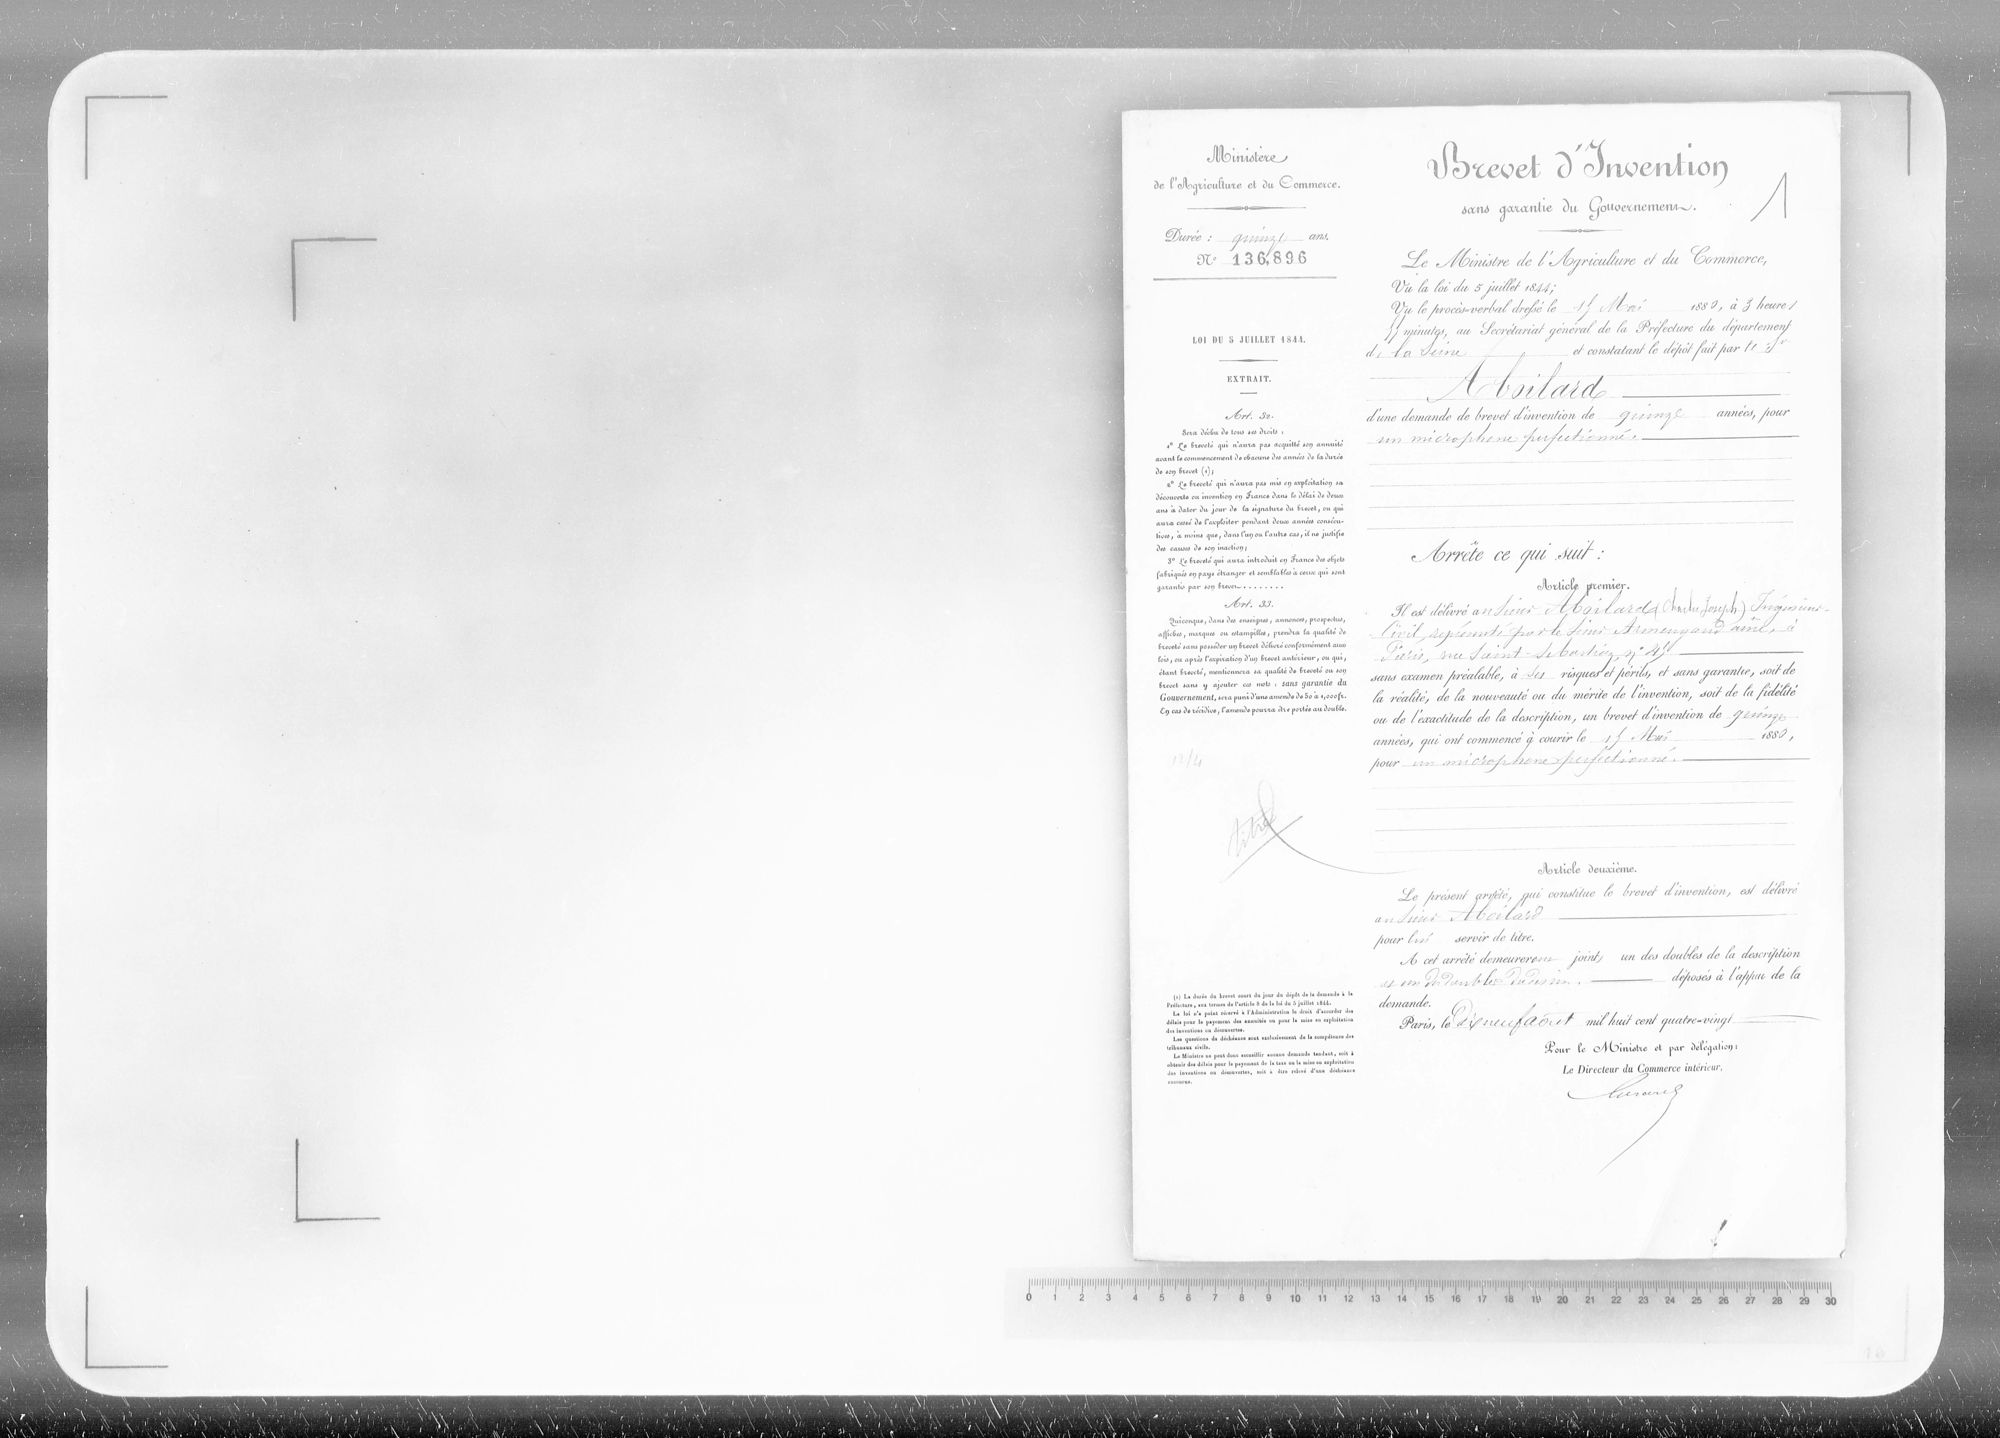 Ministère
de l'Agriculture et du Commerce.
Durée : quinze ans.
N° 136,896
LOI DU 5 JUILLET 1844.
EXTRAIT.
Art. 32.
Sera déchu de tous ses droits :
1° Le breveté qui n'aura pas acquitté son annuité
avant le commencement de chacune des années de la durée
de son brevet (1);
2° Le breveté qui n'aura pas mis en exploitation sa
découverte ou invention en France dans le délai de deux
ans à dater du jour de la signature du brevet, ou qui
aura cessé de l'exploiter pendant deux années consécu-
tives, à moins que, dans l'un ou l'autre cas, il ne justifie
des causes de son inaction;
3° Le breveté qui aura introduit en France des objets
fabriqués en pays étranger et semblables à ceux qui sont
garantis par son brevet........
Art. 33.
Quiconque, dans des enseignes, annonces, prospectus,
affiches, marques ou estampilles, prendra la qualité de
breveté sans posséder un brevet délivré conformément aux
lois, ou après l'expiration d'un brevet antérieur, ou qui,
étant breveté, mentionnera sa qualité de breveté ou son
brevet sans y ajouter ces mots : sans garantie du
Gouvernement, sera puni d'une amende de 50 à 1,000 fr.
En cas de récidive, l'amende pourra être portée au double.
12/4
titre
(1) La durée du brevet court du jour du dépôt de la demande à la
Préfecture, aux termes de l'article 8 de la loi du 5 juillet 1844.
La loi n'a point réservé à l'Administration le droit d'accorder des
délais pour le payement des annuités ou pour la mise en exploitation
des inventions ou découvertes.
Les questions de déchéance sont exclusivement de la compétence des
tribunaux civils.
Le Ministre ne peut donc accueillir aucune demande tendant, soit à
obtenir des délais pour le payement de la taxe ou la mise en exploitation
des inventions ou découvertes, soit à être relevé d'une déchéance
encourue.
Brevet d'Invention
sans garantie du Gouvernement.
1
Le Ministre de l'Agriculture et du Commerce,
Vu la loi du 5 juillet 1844;
Vu le procès-verbal dressé le 15 Mai 1880, à 3 heures
minutes, au Secrétariat général de la Préfecture du département
de la Seine et constatant le dépôt fait par le Sr
Aboilard
d'une demande de brevet d'invention de quinze années, pour
un microphone perfectionné.
Arrête ce qui suit :
Article premier.
Il est délivré au Sieur Aboilard (Charles Joseph) Ingénieur-
Civil, représenté par le Sieur Armengaud aîné, à
Paris, rue Saint-Sébastien, n° 45
sans examen préalable, à ses risques et périls, et sans garantie, soit de
la réalité, de la nouveauté ou du mérite de l'invention, soit de la fidélité
ou de l'exactitude de la description, un brevet d'invention de quinze
années, qui ont commencé à courir le 15 Mai 1880,
pour un microphone perfectionné.
Article deuxième.
Le présent arrêté, qui constitue le brevet d'invention, est délivré
au Sieur Aboilard
pour lui servir de titre.
A cet arrêté demeureront joints un des doubles de la description
et un des doubles du dessin. déposés à l'appui de la
demande.
Paris, le Dix neuf août mil huit cent quatre-vingt
Pour le Ministre et par délégation:
Le Directeur du Commerce intérieur,
0 1 2 3 4 5 6 7 8 9 10 11 12 13 14 15 16 17 18 19 20 21 22 23 24 25 26 27 28 29 30